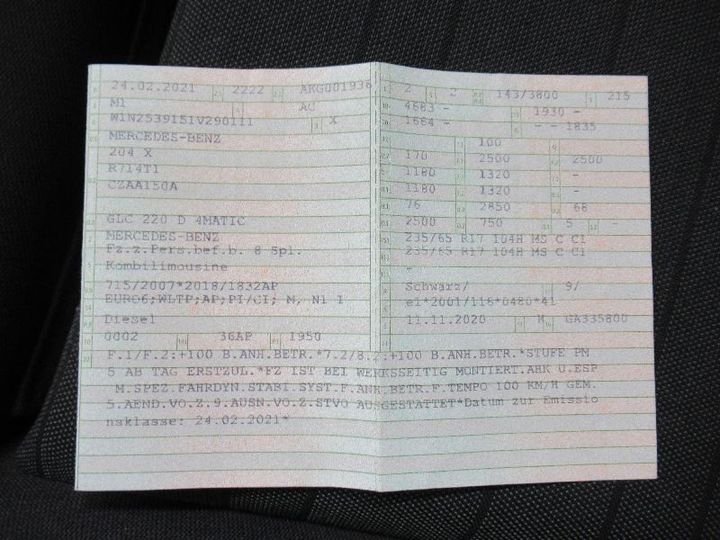 24.02.2021 2222 AKG001936
M1 AC
W1N2539151V290111 X
MERCEDES-BENZ
204 X
R714T1
CZAA150A
GLC 220 D 4MATIC
MERCEDES-BENZ
Fz.z.Pers.bef.b. 8 Spl.
Kombilimousine
715/2007*2018/1832AP
EURO6;WLTP;AP;PI/CI; M, N1 I
Diesel
0002 36AP 1950
2 2 143/3800 215
4663 - 1930 -
1664 - - - 1835
100
170 2500 2500
1180 1320 -
1180 1320 -
76 2850 68
2500 750 5 -
235/65 R17 104H MS C C1
235/65 R17 104H MS C C1
-
Schwarz/ 9/
e1*2001/116*0480*41
11.11.2020 K GA335800
F.1/F.2:+100 B.ANH.BETR.*7.2/8.2:+100 B.ANH.BETR.*STUFE PM
5 AB TAG ERSTZUL.*FZ IST BEI WERKSSEITIG MONTIERT.AHK U.ESP
M.SPEZ.FAHRDYN.STABI.SYST.F.ANH.BETR.F.TEMPO 100 KM/H GEM.
5.AEND.VO.Z.9.AUSN.VO.Z.STVO AUSGESTATTET*Datum zur Emissio
nsklasse: 24.02.2021*